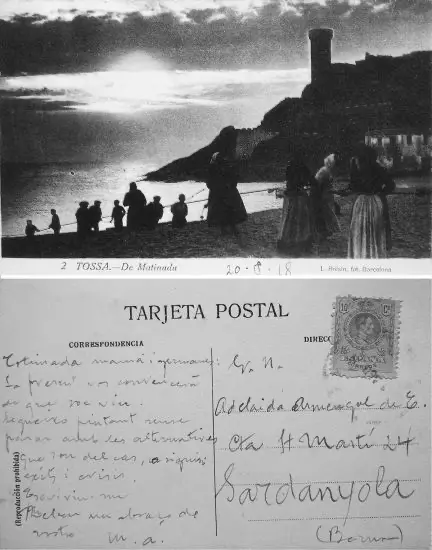 2 TOSSA.—De Matinada
20-8-18
L. Roisin, fot. Barcelona
TARJETA POSTAL
CORRESPONDENCIA
DIREC
Estimada mamá i germanes:
La present vos convencerà
de que soc viu.
Segueixo pintant sense
parar amb les alternatives
que son del cas, o siguin:
èxits i crisis.
Escriviu-me
Rebeu un abraç de
vostre
M. A.
(Reproducción prohibida)
Sra. Na.
Adelaida Armengol de E.
Cta St Martí 24
Sardanyola
(Barna)
10 Cs